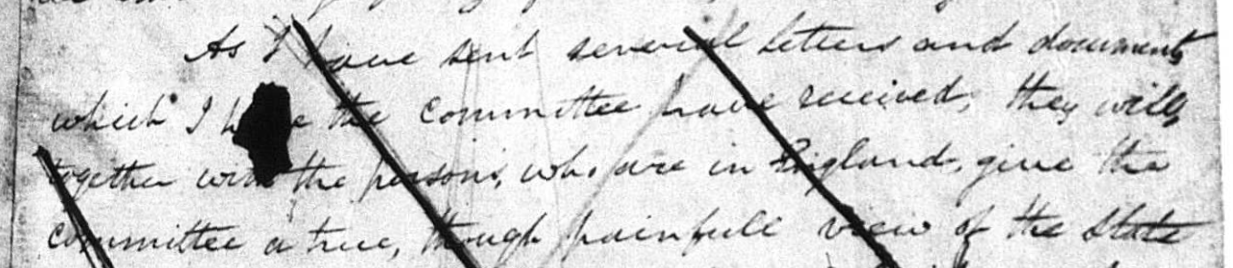 As I have sent several letters and documents
which I hope the Committee have received, they will,
together with the persons, who are in England, give the
committee a true, though painfull view of the State